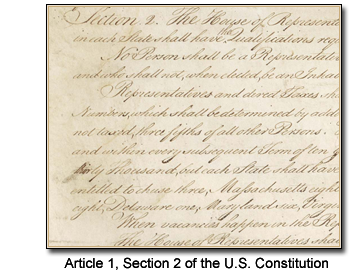 Section 2. The House of Represent
in each State shall have the Qualifications req
No Person shall be a Representat
and who shall not, when elected, be an Inha
Representatives and direct Taxes sh
Numbers, which shall be determined by add
not taxed, three fifths of all other Persons.
and within every subsequent Term of ten
thirty Thousand, but each State shall have
entitled to chuse three, Massachusetts eight
eight, Delaware one, Maryland six, Virg
When vacancies happen in the Re
The House of Representatives sha
Article 1, Section 2 of the U.S. Constitution